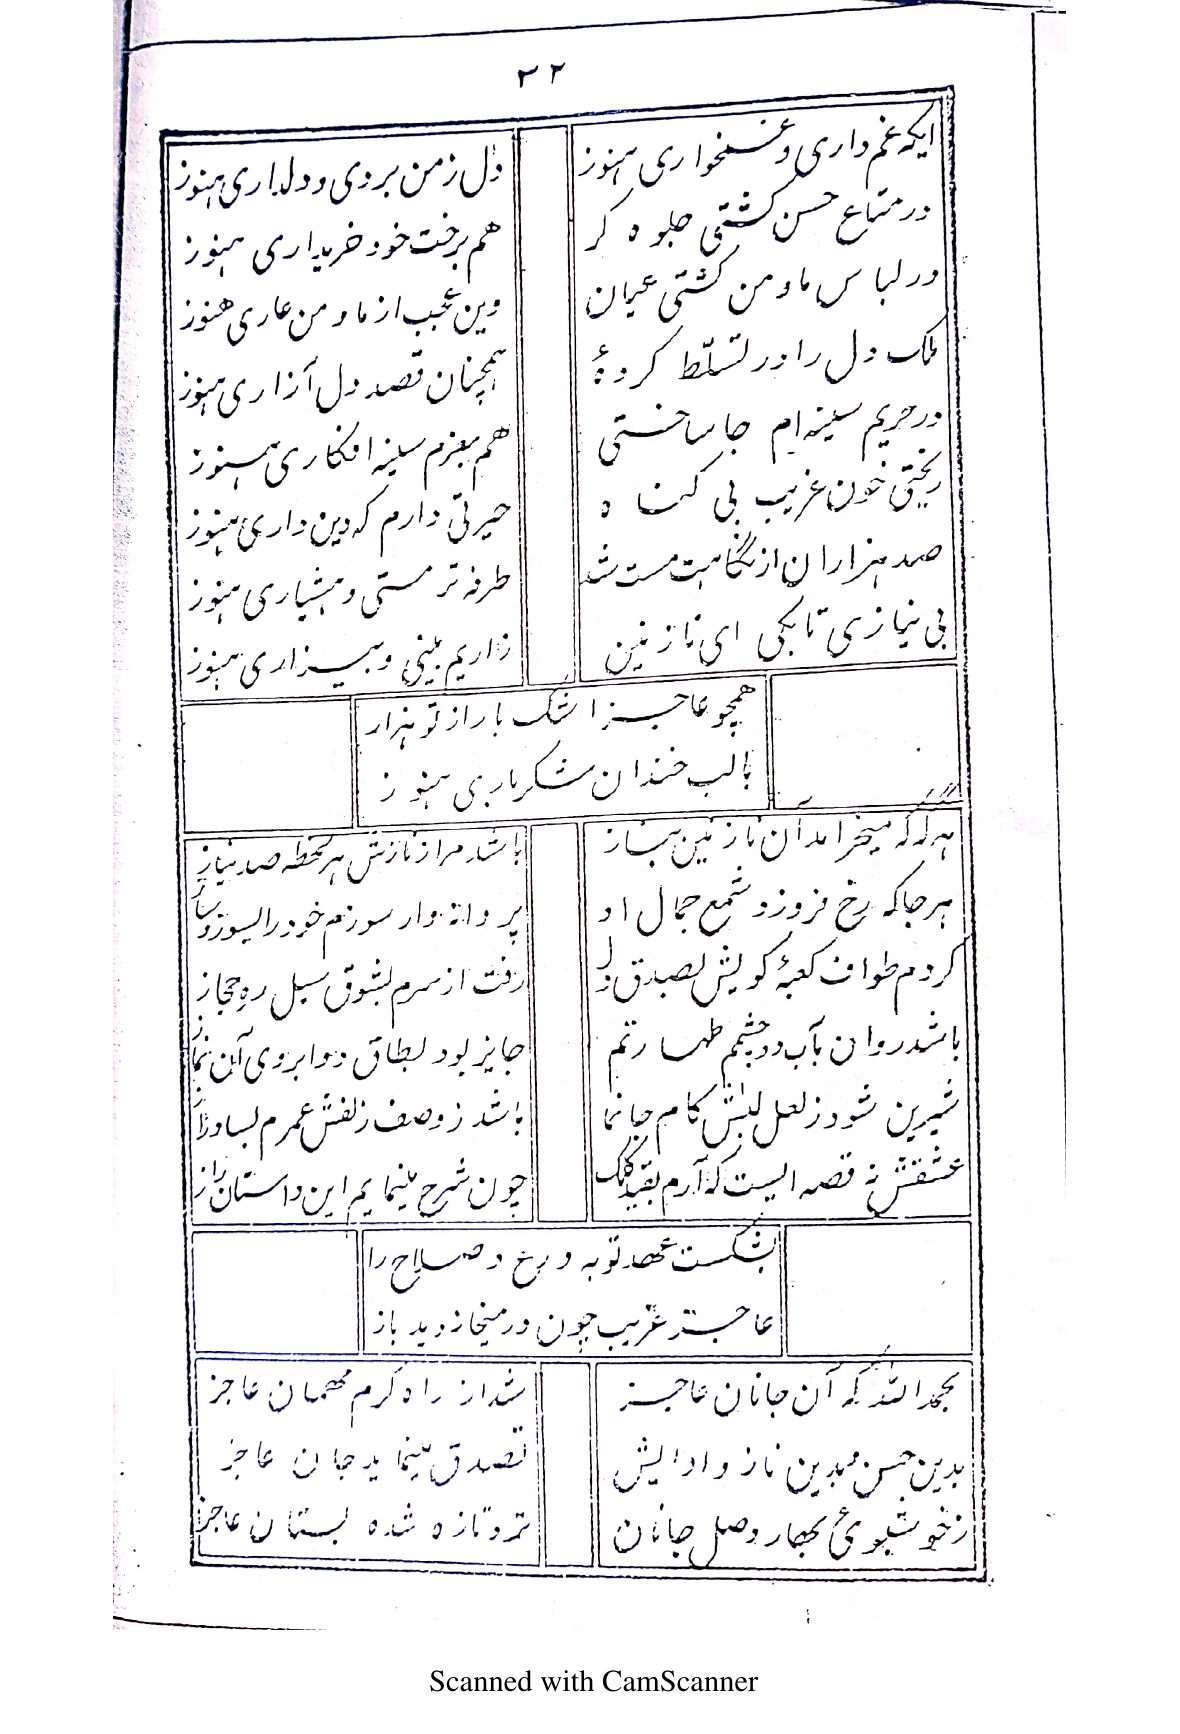 ۳۲
ایکه غم داری و غمخواری هنوز
دل ز من بردی و دلداری هنوز
در متاع حسن گشتی جلوه گر
هم برخت خود خریداری هنوز
در لباس ما و من گشتی عیان
وین عجب از ما و من عاری هنوز
ملک دل را در تسلّط کردهٔ
همچنان قصد دل آزاری هنوز
در حریم سینه ام جا ساختی
هم بعزم سینه افکاری هنوز
ریختی خون غریب بی گناه
حیرتی دارم که دین داری هنوز
صد هزاران از نگاهت مست شد
طرفه تر مستی و هشیاری هنوز
بی نیازی تا بکی ای نازنین
زاریم بینی و بیزاری هنوز
همچو عاجز اشک بار از تو هزار
با لب خندان شکرباری هنوز
هرگه که میخرامد آن نازنین بناز
باشد مرا ز نازش هر لحظه صد نیاز
هر جا که رخ فروزد شمع جمال او
پروانه وار سوزم خود را بسوز و ساز
کردم طواف کعبهٔ کویش بصدق دل
رفت از سرم بشوق سبل ره حجاز
باشد روان بآب دو چشمم طهارتم
جایز بود بطاق دو ابروی آن نماز
شیرین شود ز لعل لبش کام جانما
باشد ز وصف زلفش عمرم بسا دراز
عشقش نه قصه ایست که آرم بقید کلک
چون شرح مینمایم این داستان راز
بشکست عهد توبه و رخ صلاح را
عاجز غریب چون در میخانه دید باز
بحمدالله که آن جانان عاجز
شد از راه کرم مهمان عاجز
بدین حسن و بدین ناز و ادایش
تصدق مینماید جان عاجز
ز خوشبوئ بهار وصل جانان
تر و تازه شده بستان عاجز
Scanned with CamScanner